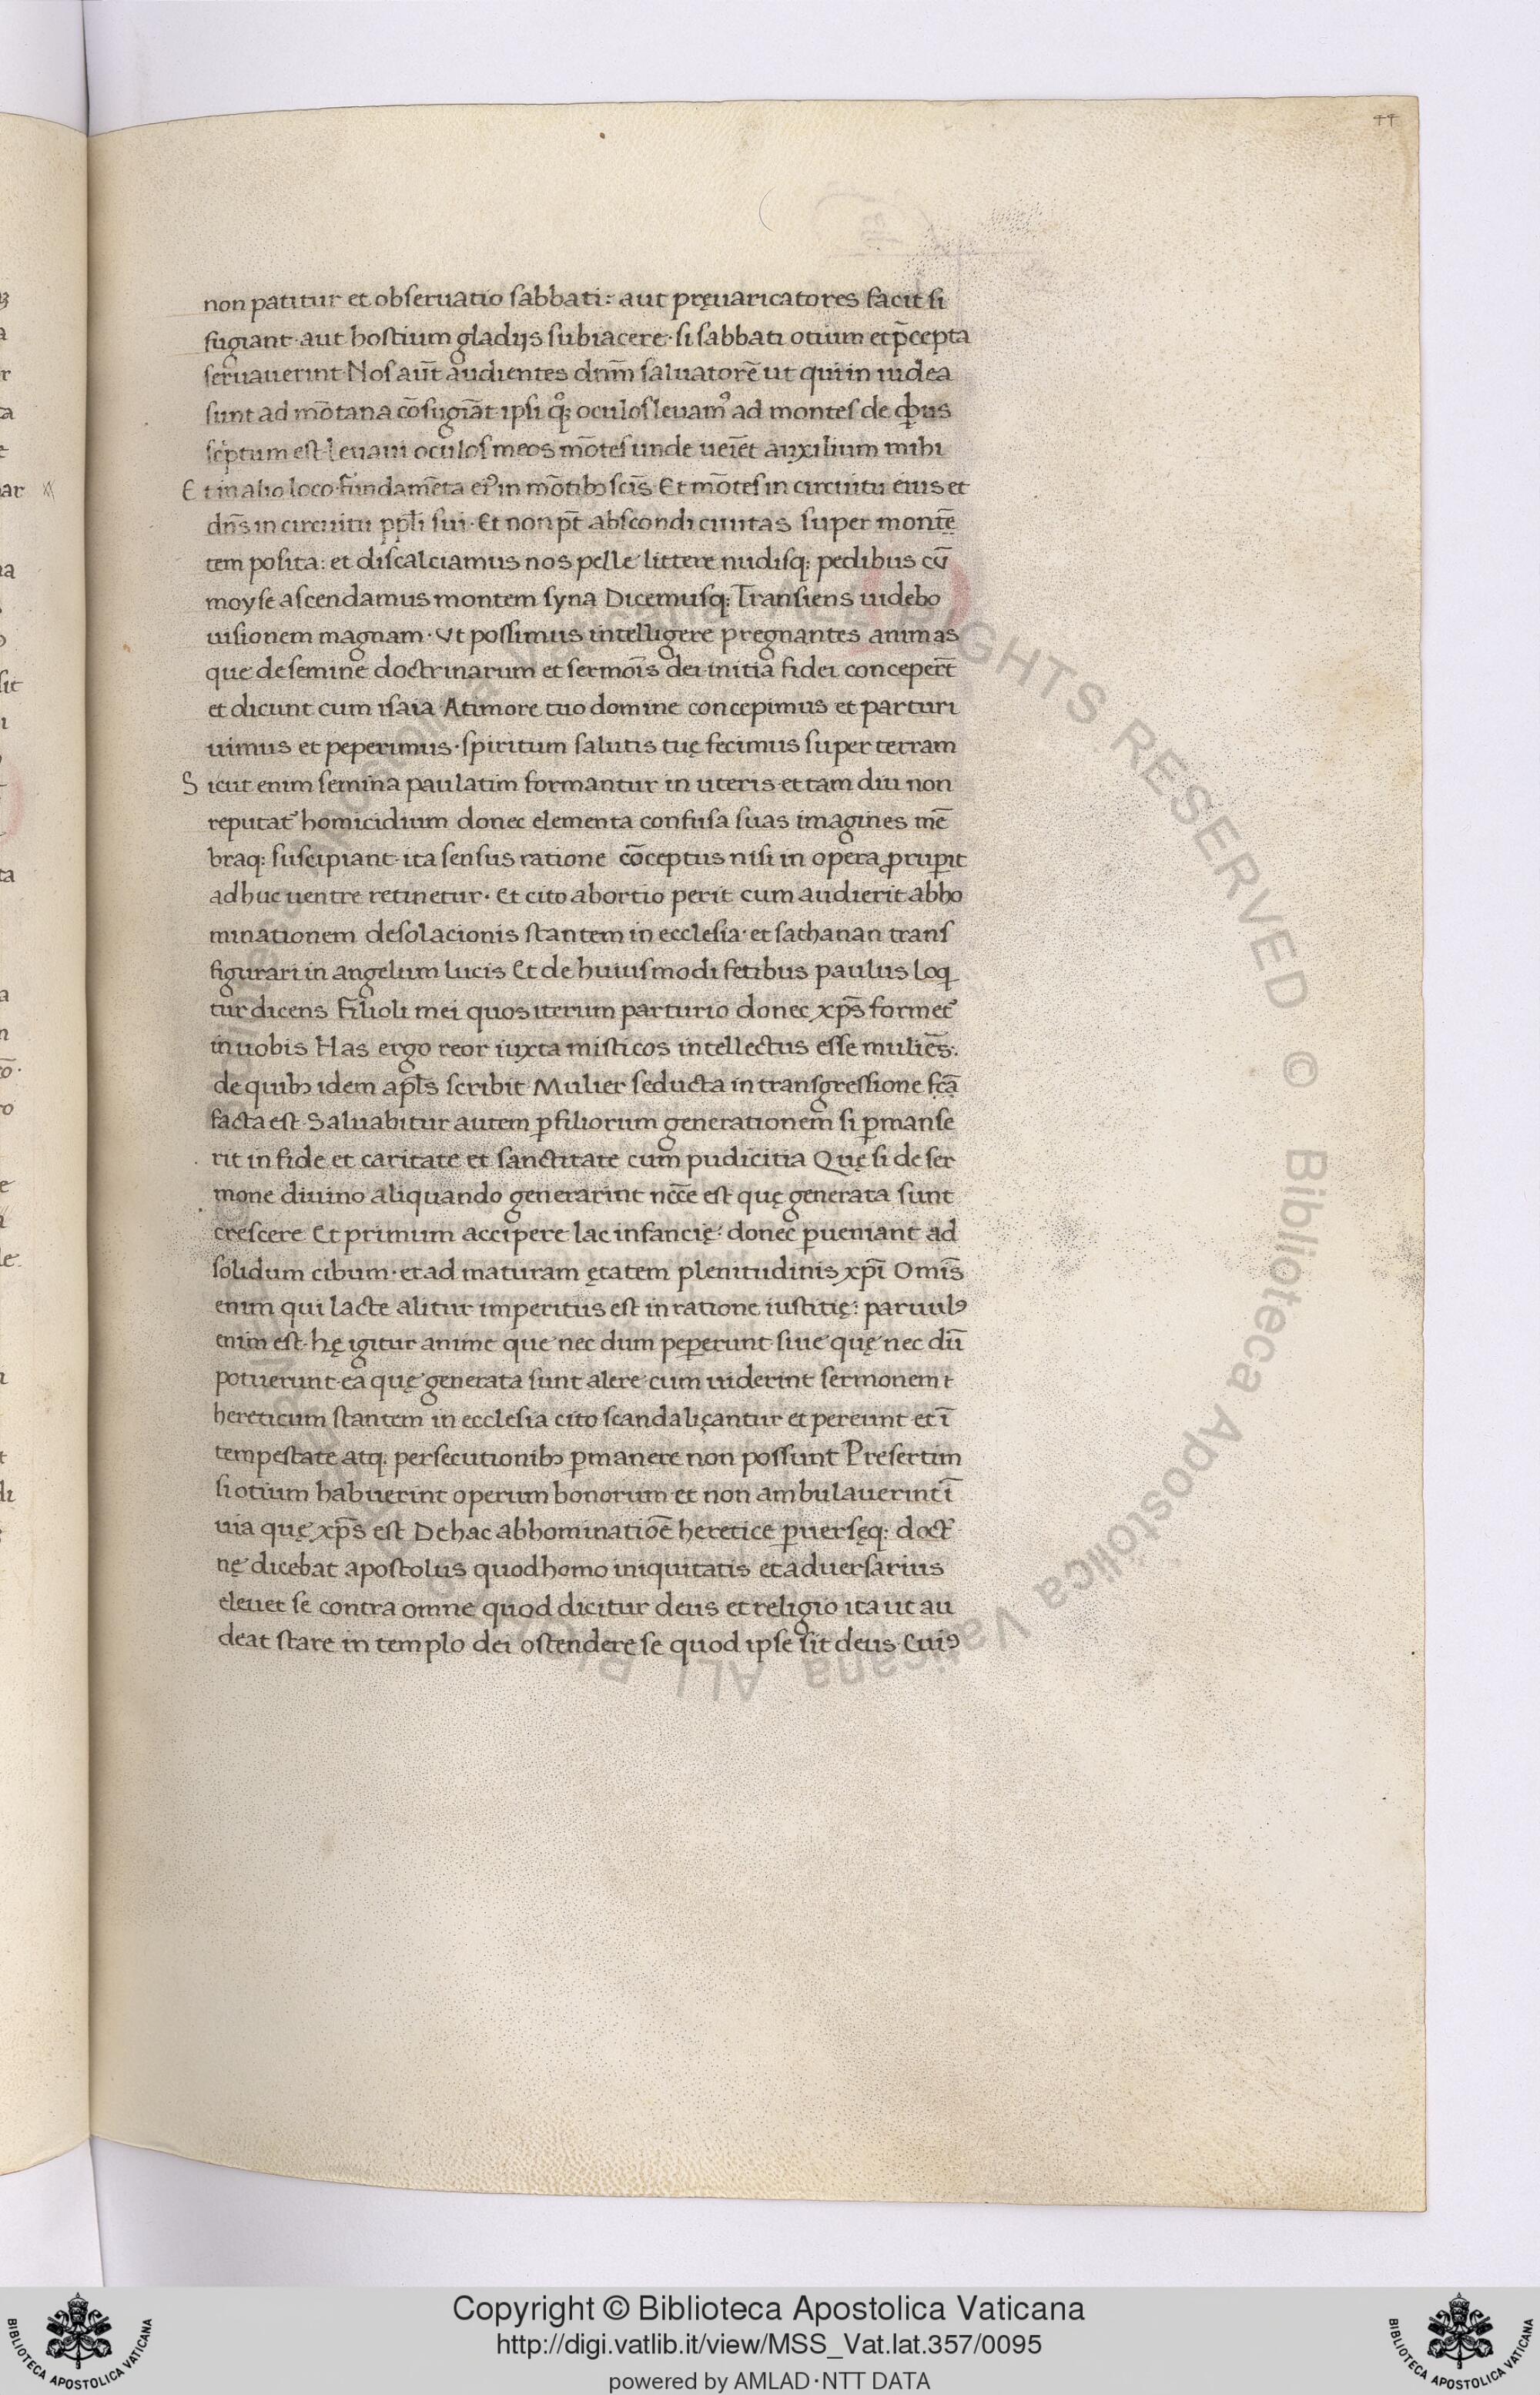 44
non patitur et obseruatio sabbati: aut pręuaricatores facit si
fugiant· aut hostium gladijs subiacere· si sabbati otium et p̄cepta
seruauerint· Nos aūt audientes dnm̄ saluatorē ut qui in iudea
sunt ad mōtana cōfugiāt ipsi qꝫ oculos leuamꝰ ad montes de qͥbus
scͥptum est· leuaui oculos meos mōtes unde ueīet auxilium mihi
Et in alio loco· fundamēta eiꝰ in mōtibꝫ scīs· Et mōtes in circuitu eius et
dn̄s in circuitu ppl̄i sui· Et non pt̄ abscondi ciuitas super montē
tem posita: et discalciamus nos pelle littere nudisqꝫ pedibus cū
moyse ascendamus montem syna Dicemusqꝫ Transiens uidebo
uisionem magnam· Vt possimus intelligere pregnantes animas
que de semine doctrinarum et sermoīs dei initia fidei conceper̄t
et dicunt cum isaia Atimore tuo domine concepimus et parturi
uimus et peperimus· spiritum salutis tuę fecimus super terram
Sicut enim semina paulatim formantur in uteris et tam diu non
reputat᷑ homicidium donec elementa confusa suas imagines mē
braqꝫ suscipiant· ita sensus ratione cōceptus nisi in opera ꝓruꝑit
adhuc uentre retinetur· Et cito abortio perit cum audierit abho
minationem desolacionis stantem in ecclesia· et sathanan trans
figurari in angelum lucis Et de huiusmodi fetibus paulus loq
tur dicens Filioli mei quos iterum parturio donec xp̄s formet᷑
in uobis Has ergo reor iuxta misticos intellectus esse muliēs:
de quibꝫ idem apl̄s scribit· Mulier seducta in transgressione fc̄a
facta est· Saluabitur autem ꝑ filiorum generationem si ꝑmanse
rit in fide et caritate et sanctitate cum pudicitia Quę si de ser
mone diuino aliquando generarint nc̄ce est quę generata sunt
crescere Et primum accipere lac infancię· donec ꝑueniant ad
solidum cibum· et ad maturam ętatem plenitudinis xp̄i Omīs
enim qui lacte alitur imperitus est in ratione iustitię: paruulꝰ
enim est· hę igitur anime que nec dum peꝑerunt siue quę nec dū
potuerunt ea quę generata sunt alere cum uiderint sermonem
hereticum stantem in ecclesia cito scandaliçantur et pereunt et ī
tempestate atqꝫ persecutionibꝫ ꝑmanere non possunt Presertim
si otium habuerint operum bonorum et non ambulauerint ī
uia quę xp̄s est De hac abhominatiōe heretice ꝑuersęqꝫ doctͥ
nę dicebat apostolus quod homo iniquitatis et aduersarius
eleuet se contra omne quod dicitur deus et religio ita ut au
deat stare in templo dei ostendere se quod ipse sit deus Cuiꝰ
ALL RIGHTS RESERVED © Biblioteca Apostolica Vaticana
Copyright © Biblioteca Apostolica Vaticana
http://digi.vatlib.it/view/MSS_Vat.lat.357/0095
powered by AMLAD·NTT DATA
BIBLIOTECA APOSTOLICA VATICANA
BIBLIOTECA APOSTOLICA VATICANA